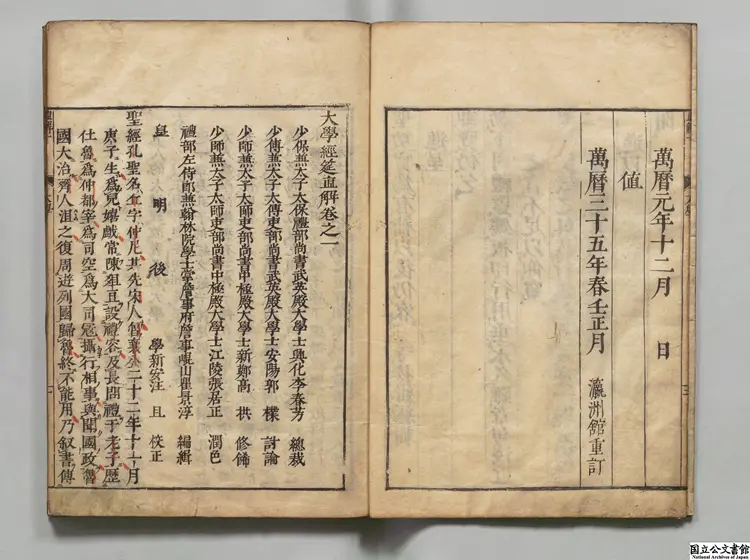 萬曆元年十二月 日
值
萬曆三十五年春壬正月 瀛洲館重訂
大學經筵直解卷之一
少保兼太子太保禮部尚書武英殿大學士興化李春芳 總裁
少傅兼太子太傅吏部尚書武英殿大學士安陽郭 樸 討論
少師兼太子太師吏部尚書中極殿大學士新鄭高 拱 修飾
少師兼太子太師吏部尚書中極殿大學士江陵張居正 潤色
禮部左侍郎兼翰林院學士掌詹事府詹事崐山瞿景淳 編輯
皇 明 後 學新安汪 旦 校正
聖經孔聖名丘字仲尼其先宋人魯襄公二十二年十一月
庚子生爲兒嬉戲常陳俎豆設禮容及長問禮于老子歷
仕魯爲仲都宰爲司空爲大司寇攝行相事與聞國政魯
國大治齊人沮之復周遊列國歸魯終不能用乃叙書傳
国立公文書館
National Archives of Japan